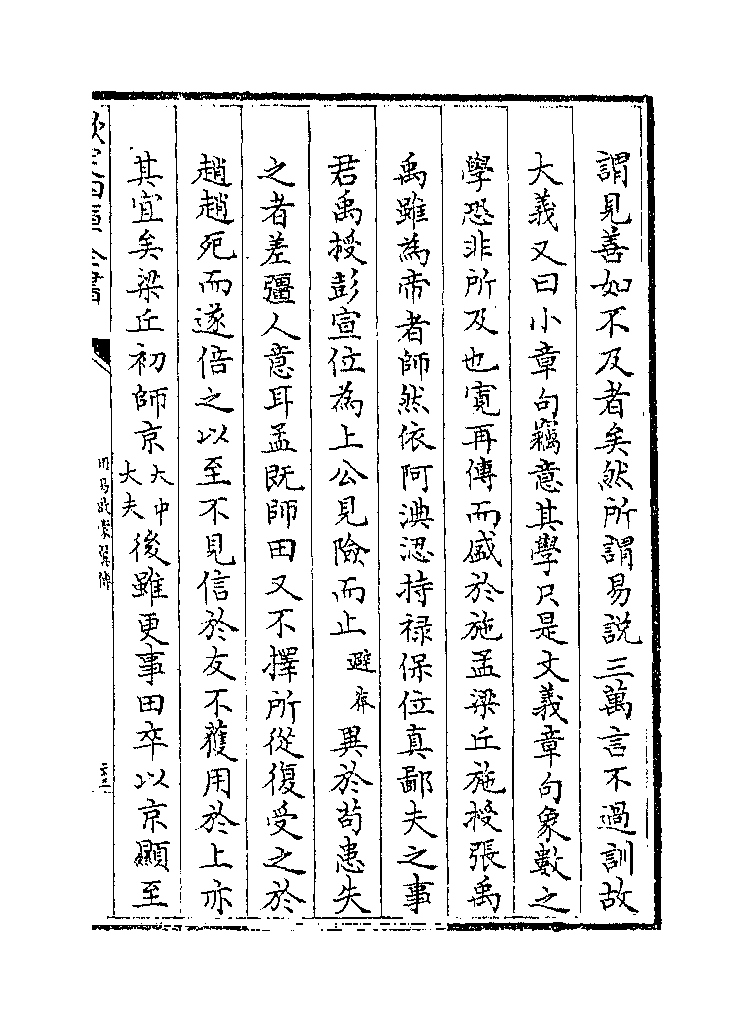 謂見善如不及者矣然所謂易説三萬言不過訓故
大義又曰小章句竊意其學只是文義章句象數之
學恐非所及也寛再傳而盛於施孟梁丘施授張禹
禹雖為帝者師然依阿淟涊持禄保位真鄙夫之事
君禹授彭宣位為上公見險而止避莽異於苟患失
之者差彊人意耳孟既師田又不擇所從復受之於
趙趙死而遂倍之以至不見信於友不獲用於上亦
其宜矣梁丘初師京大中大夫後雖更事田卒以京顯至
欽定四庫全書
周易啟蒙翼傳